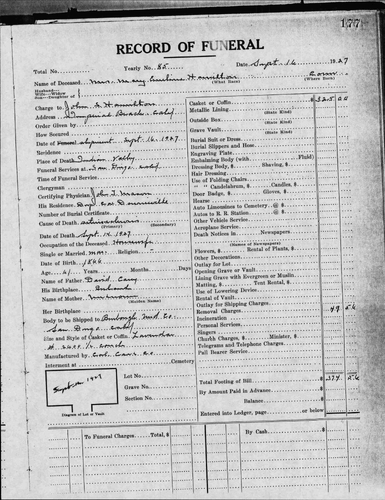 177
RECORD OF FUNERAL
Total No. Yearly No. 85 Date Sept. 16 1927
Name of Deceased Mrs. Mary Hamilton Conn.
Husband—
Wife—Widow
Son—Daughter of (What Race) (Where Born)
Charge to John S. Hamilton
Address Imperial Beach, Calif
Order Given by
How Secured
Date of Funeral shipment Sept. 16, 1927.
Residence
Place of Death Indian Valley
Funeral Services at San Diego, Calif
Time of Funeral Service
Clergyman
Certifying Physician John I. Mason
His Residence
Number of Burial Certificate
Cause of Death
(Primary) (Secondary)
Date of Death Sept. 14, 1927
Occupation of the Deceased Housewife
Single or Married mar. Religion
Date of Birth 1866
Age 61 Years Months Days
Name of Father David
His Birthplace
Name of Mother unknown
(Maiden Name)
Her Birthplace
Body to be Shipped to
San Diego, Calif
Size and Style of Casket or Coffin Lavendar
Manufactured by
Interment at Cemetery
Lot No.
Grave No.
Section No.
Sept 1927
Diagram of Lot or Vault
Casket or Coffin $325 00
Metallic Lining
(State Kind)
Outside Box
(State Kind)
Grave Vault
(State Kind)
Burial Suit or Dress
Burial Slippers and Hose
Engraving Plate
Embalming Body (with Fluid)
Dressing Body, $ Shaving, $
Hair Dressing
Use of Folding Chairs
" " Candelabrum, $ Candles, $
Door Badge, $ Gloves, $
Hearse
Auto Limousines to Cemetery @ $
Autos to R. R. Station @ $
Other Vehicle Service
Aeroplane Service
Death Notices in Newspapers
(Names of Newspapers)
Flowers, $ Rental of Plants, $
Other Decorations
Outlay for Lot
Opening Grave or Vault
Lining Grave with Evergreen or Muslin
Matting, $ Tent Rental, $
Use of Lowering Device
Rental of Vault
Outlay for Shipping Charges
Removal Charges 49 56
Incineration
Personal Services
Singers
Church Charges, $ Minister, $
Telegrams and Telephone Charges
Pall Bearer Service
Total Footing of Bill $374 56
By Amount Paid in Advance
Balance
Entered into Ledger, page or below
To Funeral Charges Total, $
By Cash $